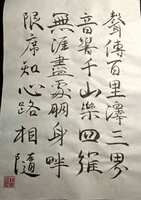 聲傳百里澤三界
音樂千山樂四維
無涯盡處朋身畔
限席知心路相隨